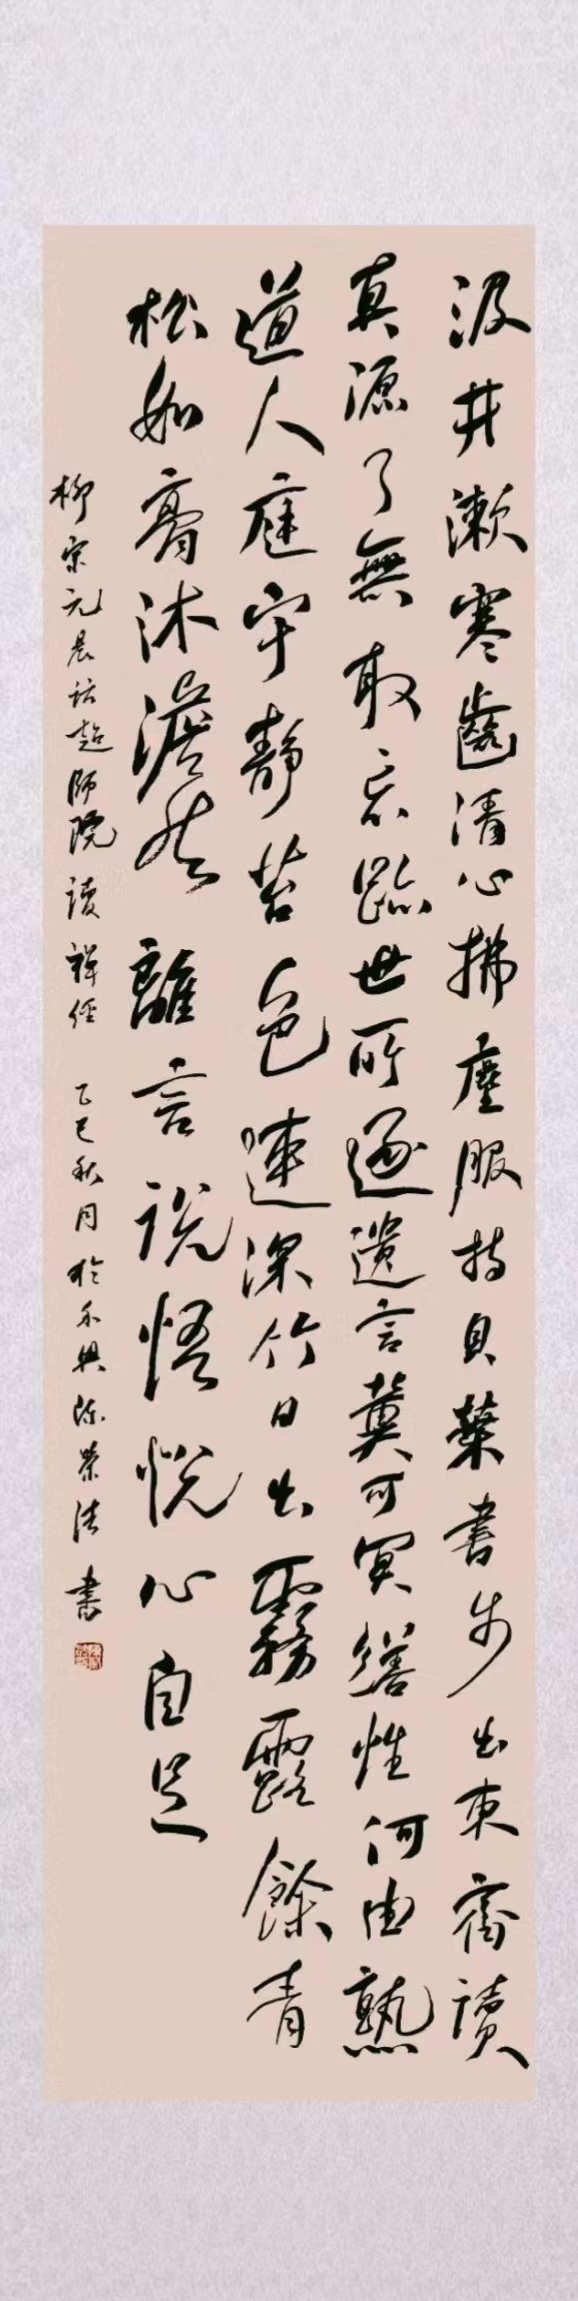 汲井漱寒齒清心拂塵服持貝葉書步出東齋讀
真源了無取忘跡世所逐遺言冀可冥繕性何由熟
道人庭宇靜苔色連深竹日出霧露餘青
松如膏沐澹然離言說悟悅心自足
柳宗元晨詣超師院讀禅經 乙巳秋月於禾興陈荣法書